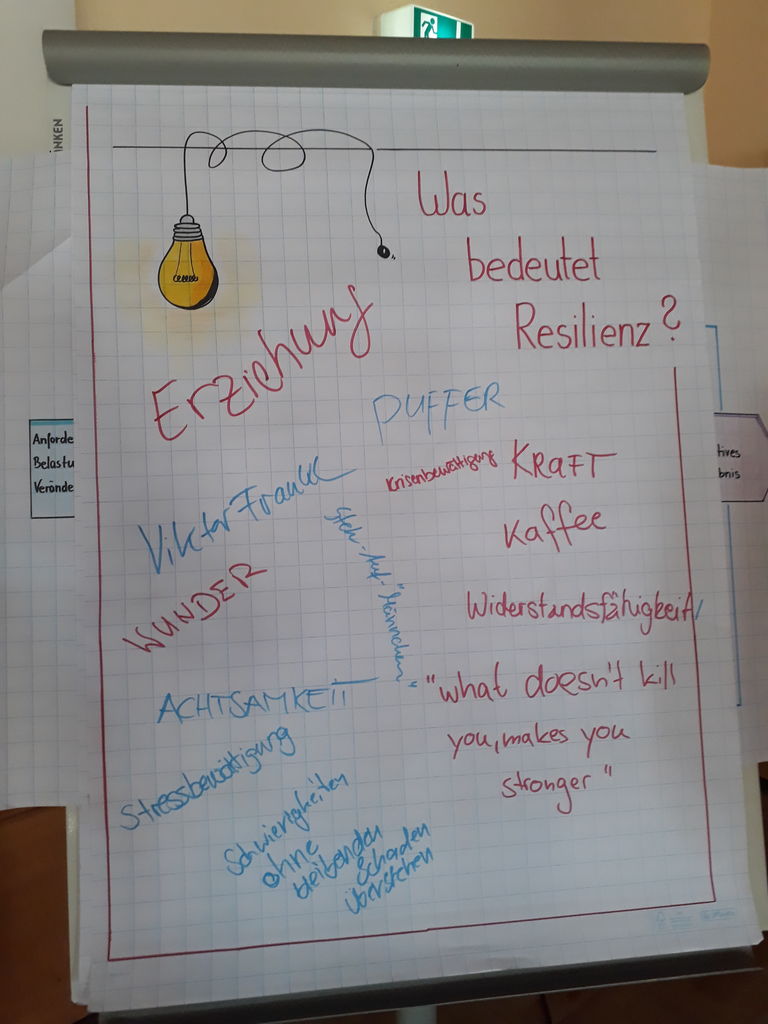 INKEN
Was
bedeutet
Resilienz?
Erziehung
PUFFER
Krisenbewältigung
KRAFT
Viktor Frankl
Kaffee
Steh-Auf-"Männchen"
WUNDER
Widerstandsfähigkeit
ACHTSAMKEIT
"what doesn't kill
you, makes you
stronger"
Stressbewältigung
Schwierigkeiten
ohne
bleibenden
Schaden
überstehen
Anforde
Belastu
Verände
tives
bnis